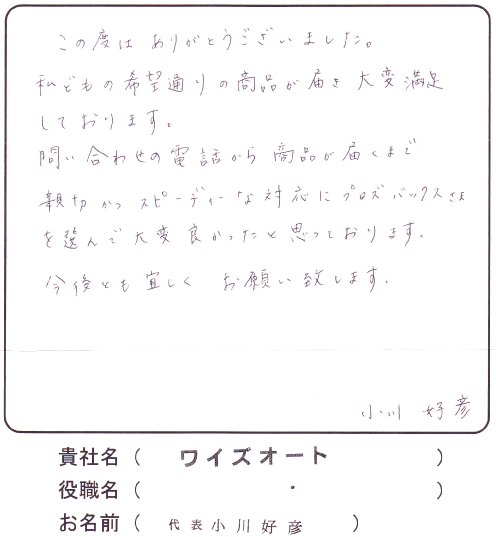 この度は ありがとうございました。
私どもの希望通りの商品が届き 大変満足
しております。
問い合わせの電話から 商品が届くまで
親切かつ スピーディーな対応に プロズバックスさま
を選んで大変良かったと思っております。
今後とも宜しく お願い致します。
小川 好彦
貴社名（ ワイズオート ）
役職名（ ・ ）
お名前（ 代表 小川好彦 ）